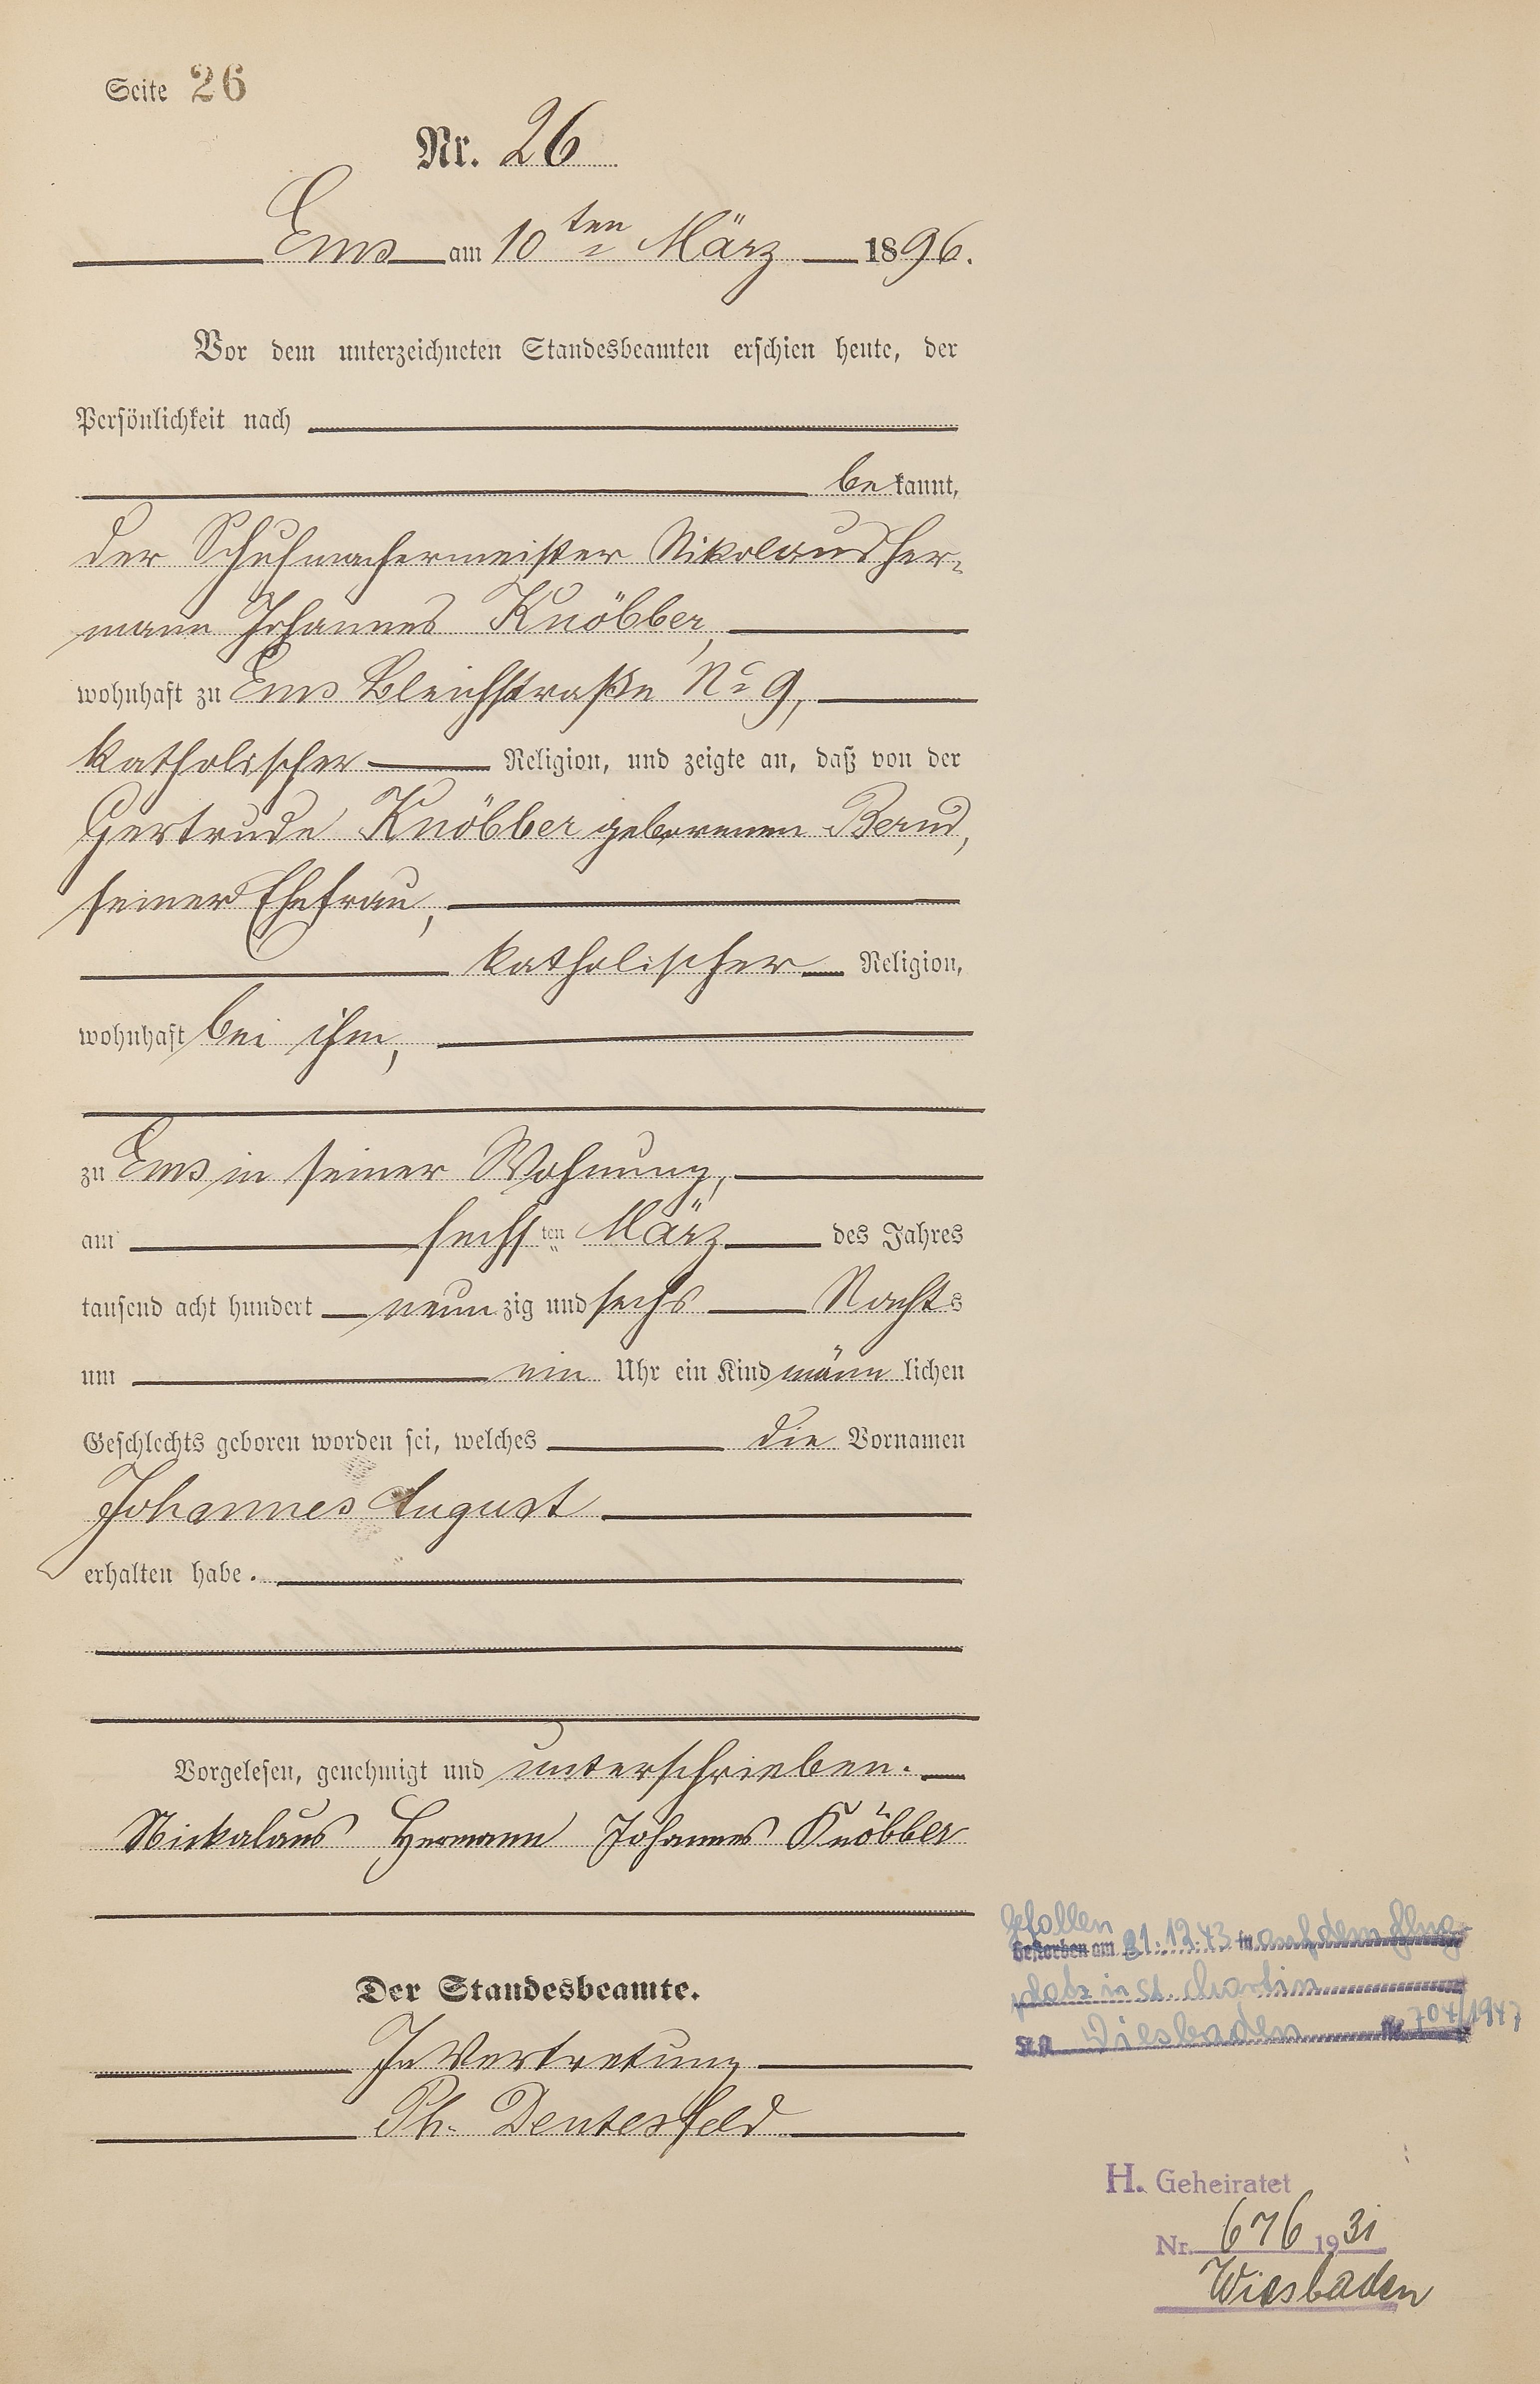 Seite 26
Nr. 26
Ems am 10ten März 1896.
Vor dem unterzeichneten Standesbeamten erschien heute, der
Persönlichkeit nach
bekannt,
der Schuhmachermeister Nikolaus Her-
mann Johannes Knöbber,
wohnhaft zu Ems Bleichstraße No 9,
katholischer Religion, und zeigte an, daß von der
Gertrude Knöbber geborenen Bernd,
seiner Ehefrau,
katholischer Religion,
wohnhaft bei ihm,
zu Ems in seiner Wohnung,
am sechsten März des Jahres
tausend acht hundert neunzig und sechs Nachts
um ein Uhr ein Kind männlichen
Geschlechts geboren worden sei, welches die Vornamen
Johannes August
erhalten habe.
Vorgelesen, genehmigt und unterschrieben.
Nickalaus Hermann Johannes Knöbber
Der Standesbeamte.
In Vertretung
Ph. Deutesfeld
gefallen
Gestorben am 21.12.43 in auf dem Flug-
platz in St. Martin
St.A. Wiesbaden Nr. 704/1947
H. Geheiratet
Nr. 676 1931
Wiesbaden